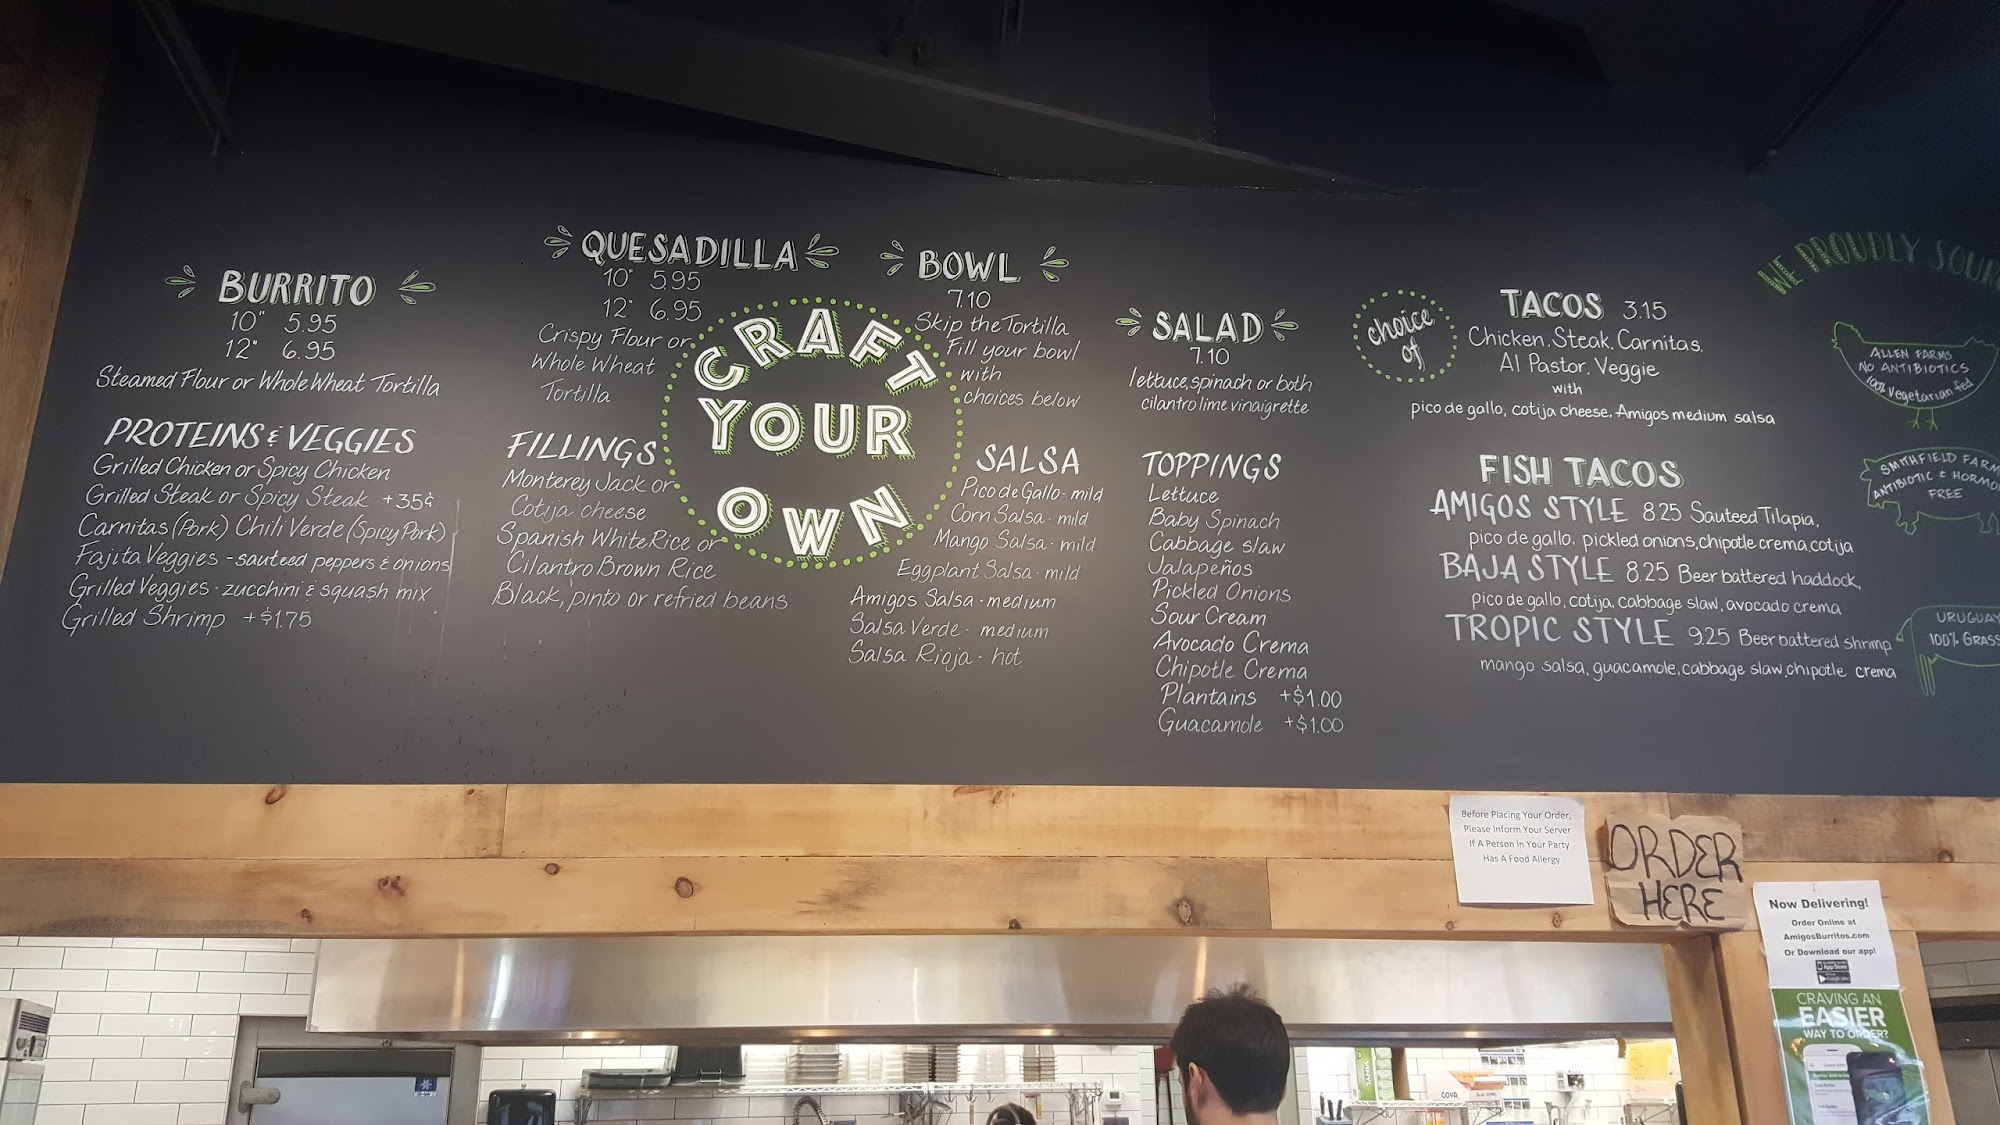 BURRITO
10" 5.95
12" 6.95
Steamed Flour or Whole Wheat Tortilla
PROTEINS & VEGGIES
Grilled Chicken or Spicy Chicken
Grilled Steak or Spicy Steak +35¢
Carnitas (Pork) Chili Verde (Spicy Pork)
Fajita Veggies - sauteed peppers & onions
Grilled Veggies - zucchini & squash mix
Grilled Shrimp +$1.75
QUESADILLA
10" 5.95
12" 6.95
Crispy Flour or
Whole Wheat
Tortilla
FILLINGS
Monterey Jack or
Cotija cheese
Spanish White Rice or
Cilantro Brown Rice
Black, pinto or refried beans
CRAFT
YOUR
OWN
BOWL
7.10
Skip the Tortilla
Fill your bowl
with
choices below
SALSA
Pico de Gallo - mild
Corn Salsa - mild
Mango Salsa - mild
Eggplant Salsa - mild
Amigos Salsa - medium
Salsa Verde - medium
Salsa Rioja - hot
SALAD
7.10
lettuce, spinach or both
cilantro lime vinaigrette
TOPPINGS
Lettuce
Baby Spinach
Cabbage slaw
Jalapeños
Pickled Onions
Sour Cream
Avocado Crema
Chipotle Crema
Plantains +$1.00
Guacamole +$1.00
choice
of
TACOS 3.15
Chicken, Steak, Carnitas,
Al Pastor, Veggie
with
pico de gallo, cotija cheese, Amigos medium salsa
FISH TACOS
AMIGOS STYLE 8.25 Sauteed Tilapia,
pico de gallo, pickled onions, chipotle crema, cotija
BAJA STYLE 8.25 Beer battered haddock,
pico de gallo, cotija, cabbage slaw, avocado crema
TROPIC STYLE 9.25 Beer battered shrimp
mango salsa, guacamole, cabbage slaw, chipotle crema
WE PROUDLY SOUR
ALLEN FARMS
NO ANTIBIOTICS
100% Vegetarian fed
SMITHFIELD FARM
ANTIBIOTIC & HORMO
FREE
URUGUAY
100% GRASS
Before Placing Your Order,
Please Inform Your Server
If A Person in Your Party
Has A Food Allergy
ORDER
HERE
Now Delivering!
Order Online at
AmigosBurritos.com
Or Download our app!
App Store
CRAVING AN
EASIER
WAY TO ORDER?
GOYA